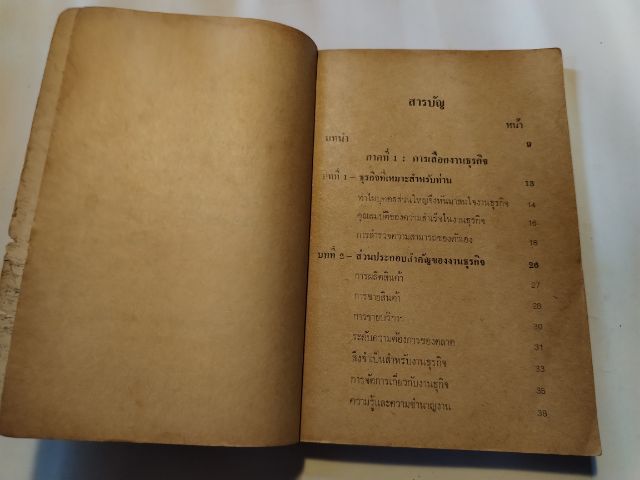 สารบัญ
หน้า
บทนำ 9
ภาคที่ 1 : การเลือกงานธุรกิจ
บทที่ 1 – ธุรกิจที่เหมาะสำหรับท่าน 13
ทำไมบุคคลส่วนใหญ่จึงหันมาสนใจงานธุรกิจ 14
คุณสมบัติของความสำเร็จในงานธุรกิจ 16
การสำรวจความสามารถของตัวเอง 18
บทที่ 2 – ส่วนประกอบสำคัญของงานธุรกิจ 26
การผลิตสินค้า 27
การขายสินค้า 28
การขายบริการ 30
ระดับความต้องการของตลาด 31
สิ่งจำเป็นสำหรับงานธุรกิจ 33
การจัดการเกี่ยวกับงานธุรกิจ 35
ความรู้และความชำนาญงาน 38